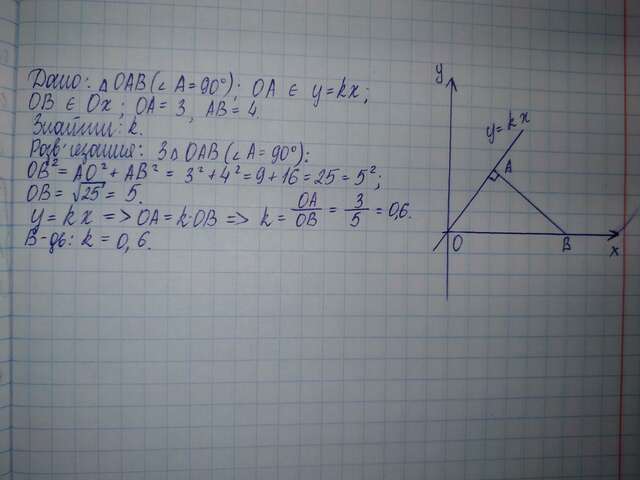 Дано: △OAB (∠A=90°); OA ∈ y=kx;
OB ∈ Ox; OA=3, AB=4.
Знайти: k.
Розв'езання: З △OAB (∠A=90°):
OB²=AO²+AB² = 3²+4²=9+16=25=5²;
OB=√25=5.
y=kx => OA=k·OB => k= OA/OB = 3/5 =0,6.
В-дь: k=0,6.
y
y=kx
A
O
B
x